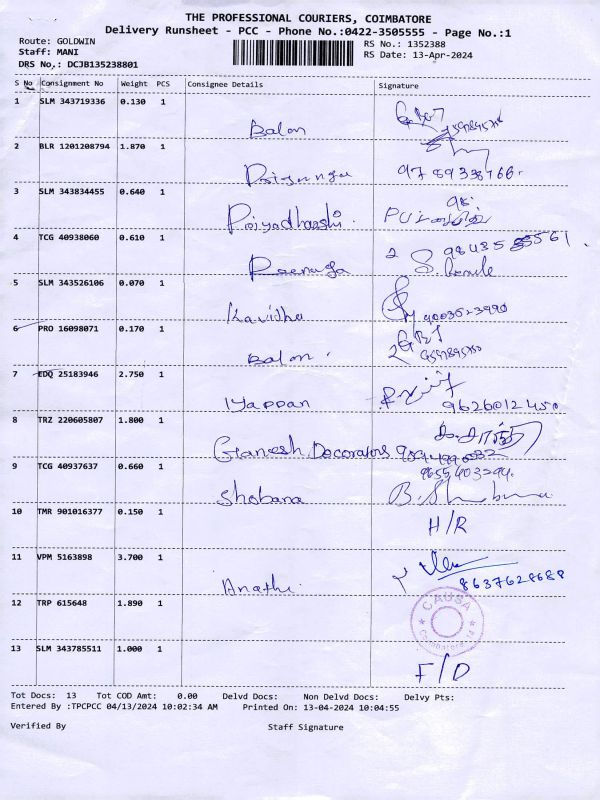 THE PROFESSIONAL COURIERS, COIMBATORE
Delivery Runsheet - PCC - Phone No.:0422-3505555 - Page No.:1
Route: GOLDWIN
Staff: MANI
DRS No.: DCJB135238801
RS No.: 1352388
RS Date: 13-Apr-2024
S No Consignment No Weight PCS Consignee Details Signature
1 SLM 343719336 0.130 1
Balan
2 BLR 1201208794 1.870 1
Priyanga
3 SLM 343834455 0.640 1
Priyadharshi
4 TCG 40938060 0.610 1
Reenuga
5 SLM 343526106 0.070 1
Kavidha 9003523990
6 PRO 16098071 0.170 1
Balan
7 EDQ 25183946 2.750 1
Iyappan 9626012450
8 TRZ 220605807 1.800 1
Ganesh Decorators
9 TCG 40937637 0.660 1
Shobana
10 TMR 901016377 0.150 1
H/R
11 VPM 5163898 3.700 1
8637628688
12 TRP 615648 1.890 1
CAUSA
Coimbatore
13 SLM 343785511 1.000 1
F/D
Tot Docs: 13 Tot COD Amt: 0.00 Delvd Docs: Non Delvd Docs: Delvy Pts:
Entered By :TPCPCC 04/13/2024 10:02:34 AM Printed On: 13-04-2024 10:04:55
Verified By Staff Signature